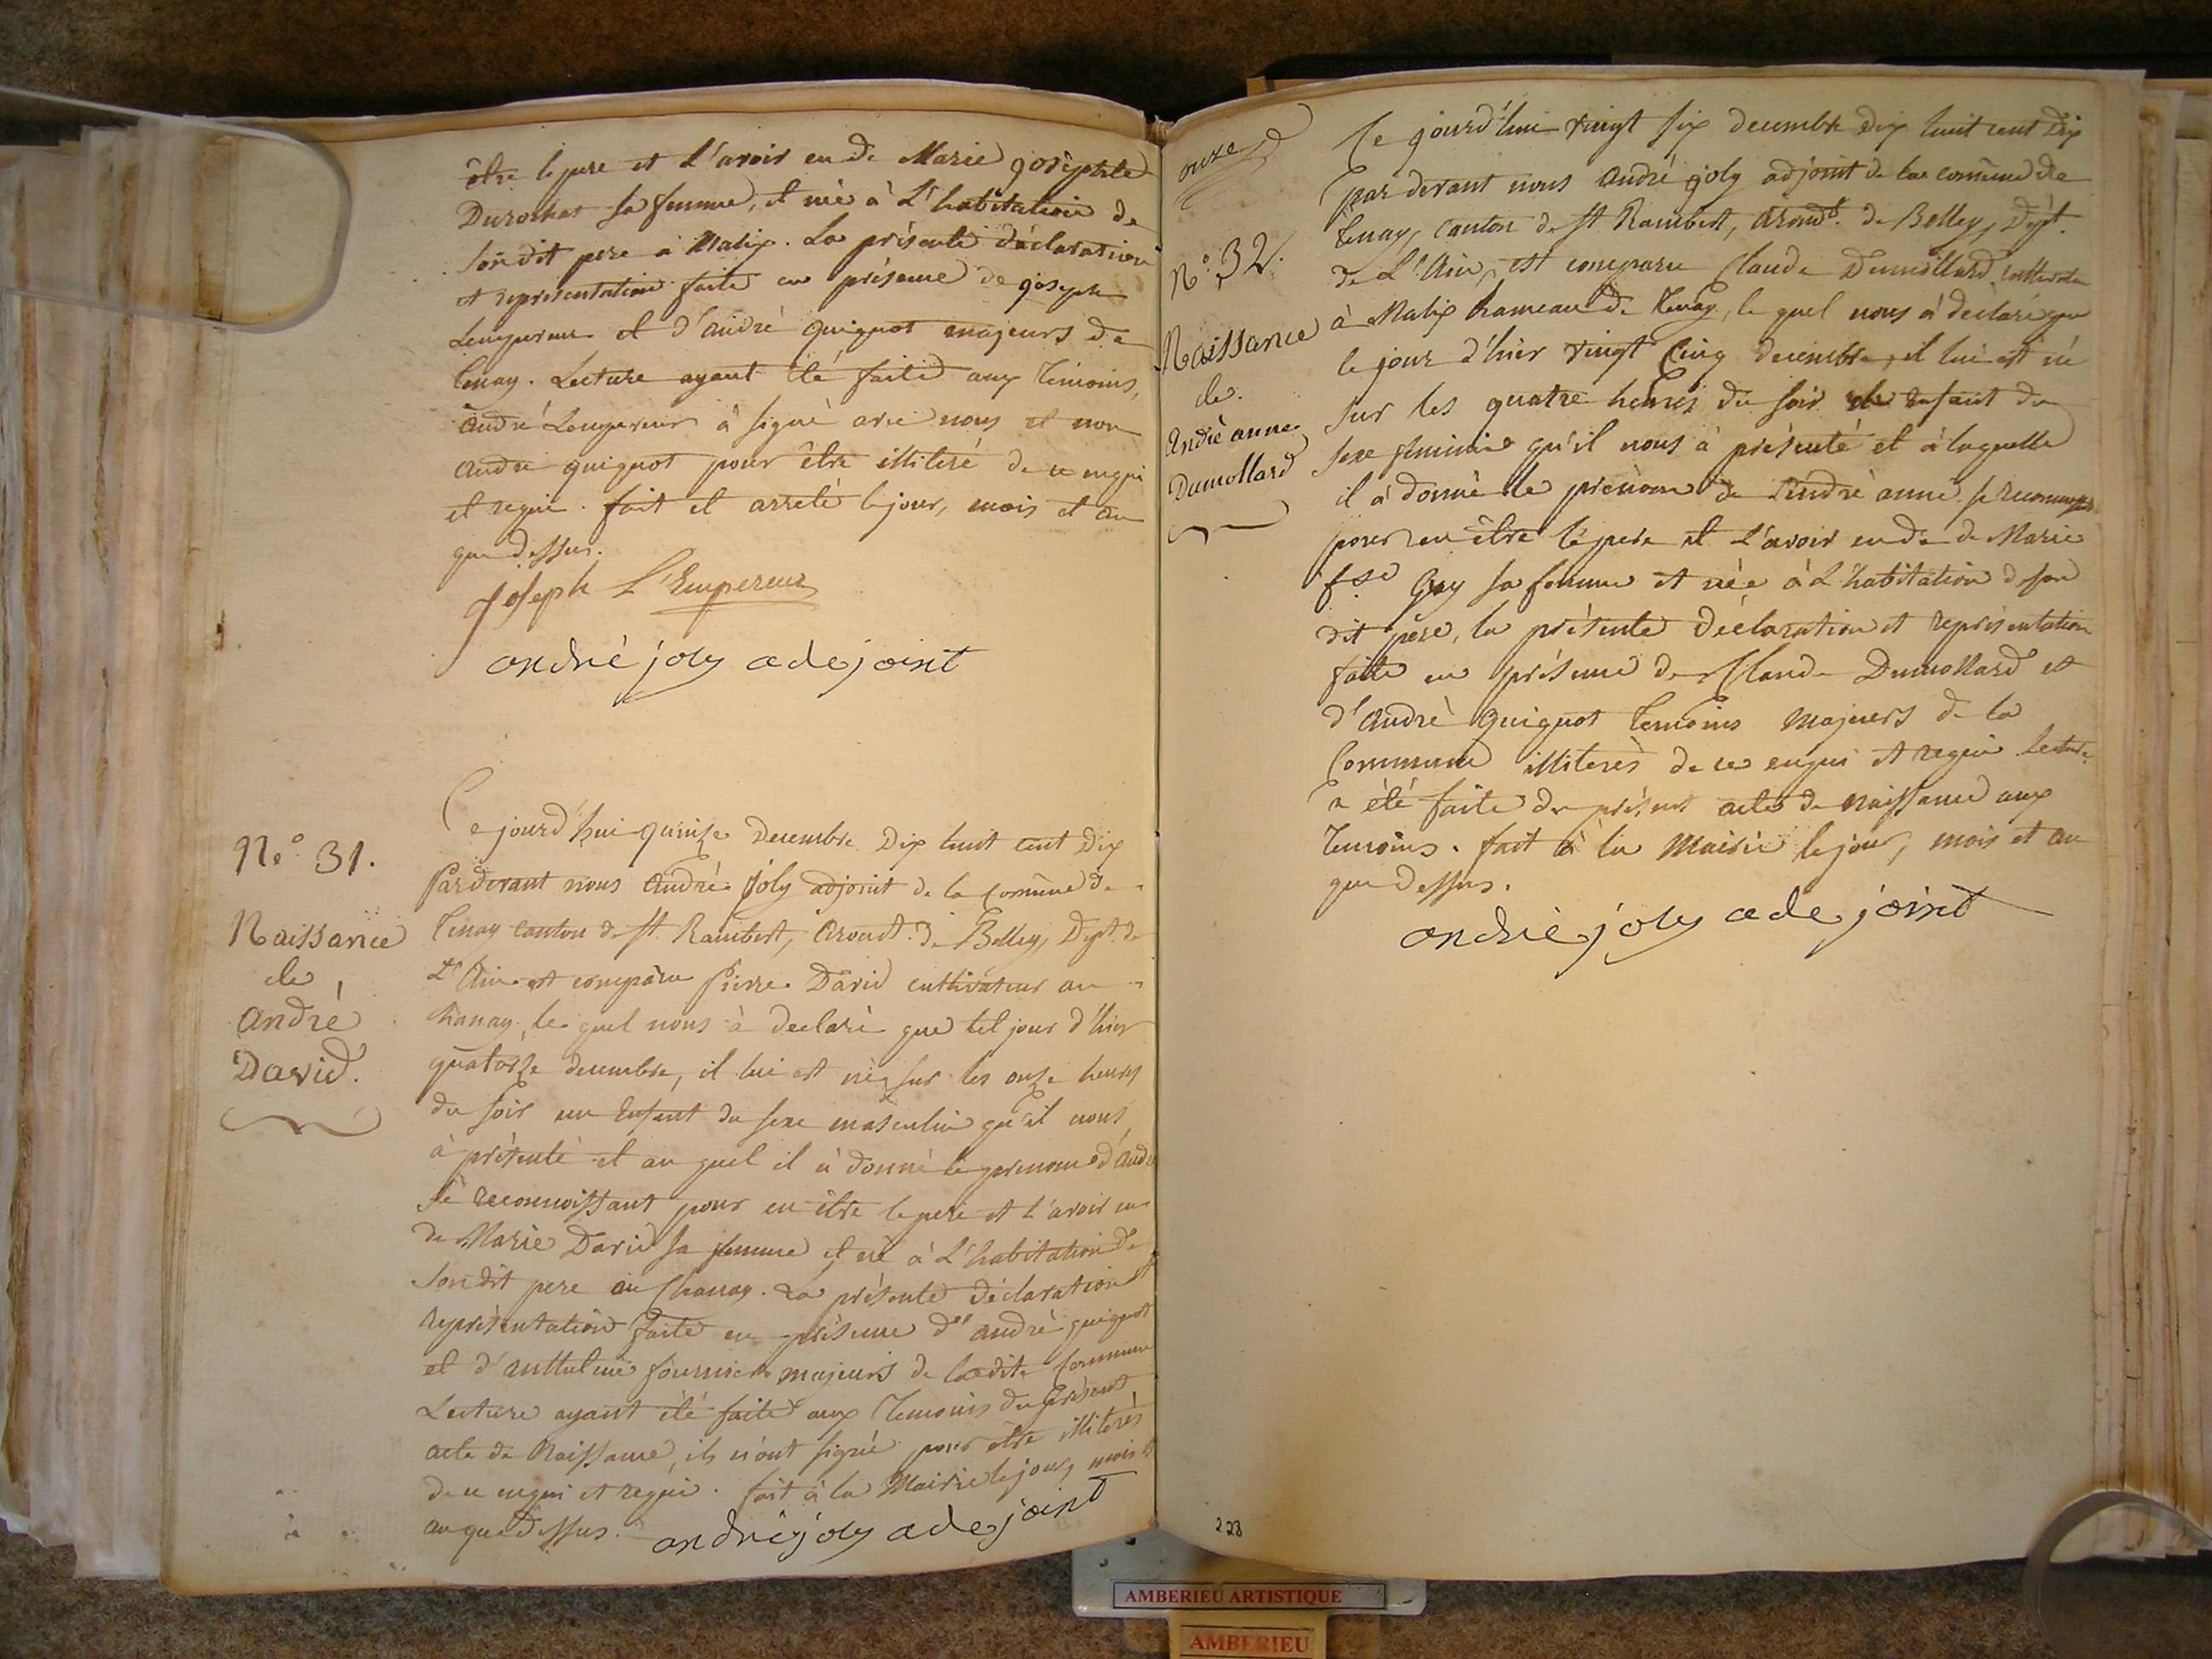 être le pere et L'avoir eu de Marie josephte
Durochat sa femme, et né à L'habitation de
son dit pere à Malix. La présente déclaration
et representation faite en présence de joseph
Lempereur et d'andré quignot majeurs de
tenay. Lecture ayant été faite aux temoins,
andré Lempereur à signé avec nous et non
andré quignot pour être illiteré de ce enqui
et requi. fait et arreté le jour, mois et an
que dessus.
Joseph L'Empereur
andrè joly adejoint
N.º 31.
Naissance
de
André
David.
Ce jourd'hui quinze Decembre Dix huit cent Dix
Pardevant nous André Joly adjoint de la Comune de
Tenay Canton de St Rambert, Arondt. de Belley, Dept. de
L'Ain est comparu Pierre David cultivateur au
Chanay, le quel nous à declaré que tel jour d'hier
quatorze decembre, il lui est né sur les onze heures
du soir un Enfant du sexe masculin qu'il nous
à présenté et au quel il à donné le prenom d'André
se reconnoissant pour en être le pere et l'avoir eu
de Marie David sa femme et né à L'habitation de
son dit pere au Chanay. La présente déclaration et
représentation faite en présence d' andré quignot
et d'anthelme fournier majeurs de la dite Commune
Lecture ayant été faite aux Temoins du présent
acte de Naissance, ils n'ont signé pour être illiterés
de ce enqui et requi. fait à la Mairie le jour, mois et
an que dessus.
andrè joly adejoint
onze
N.º 32.
Naissance
de.
Andrè anne
Dumollard
Ce jourd'hui vingt six decembre dix huit cent Dix
par devant nous André joly adjoint de la comune de
tenay, Canton de St. Rambert, Arondt. de Belley, Dept.
de L'Ain, est comparu Claude Dumollard, cultivateur
à Malix hameau de Tenay, le quel nous à declaré que
le jour d'hier vingt Cinq decembre, il lui est né
sur les quatre heures du soir un enfant du
sexe feminin qu'il nous à présenté et à laquelle
il à donné le prénom de André anne, se reconnoissant
pour en être le pere et L'avoir eu de Marie
fse Guy sa femme et née à L'habitation de son
dit pere, la présente Déclaration et représentation
faite en présence de Claude Dumollard et
d'André quignot temoins majeurs de la
Commune illiterés de ce enqui et requi Lecture
a été faite du présent acte de naissance aux
Temoins. fait à la Mairie le jour, mois et an
que dessus.
andrè joly adejoint
228
AMBERIEU ARTISTIQUE
AMBERIEU